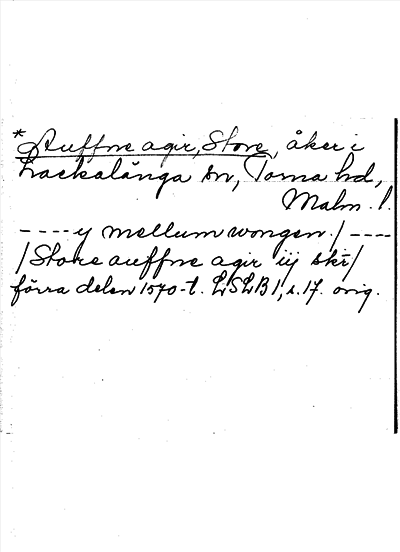 * Auffne agir, Store, åker i
Lackalänga sn, Torna hd,
Malm. l.
---- y mellum wongen / ----
/ Store auffne agir iij skr /
förra delen 1570-t. LSLB 1, s. 17. orig.